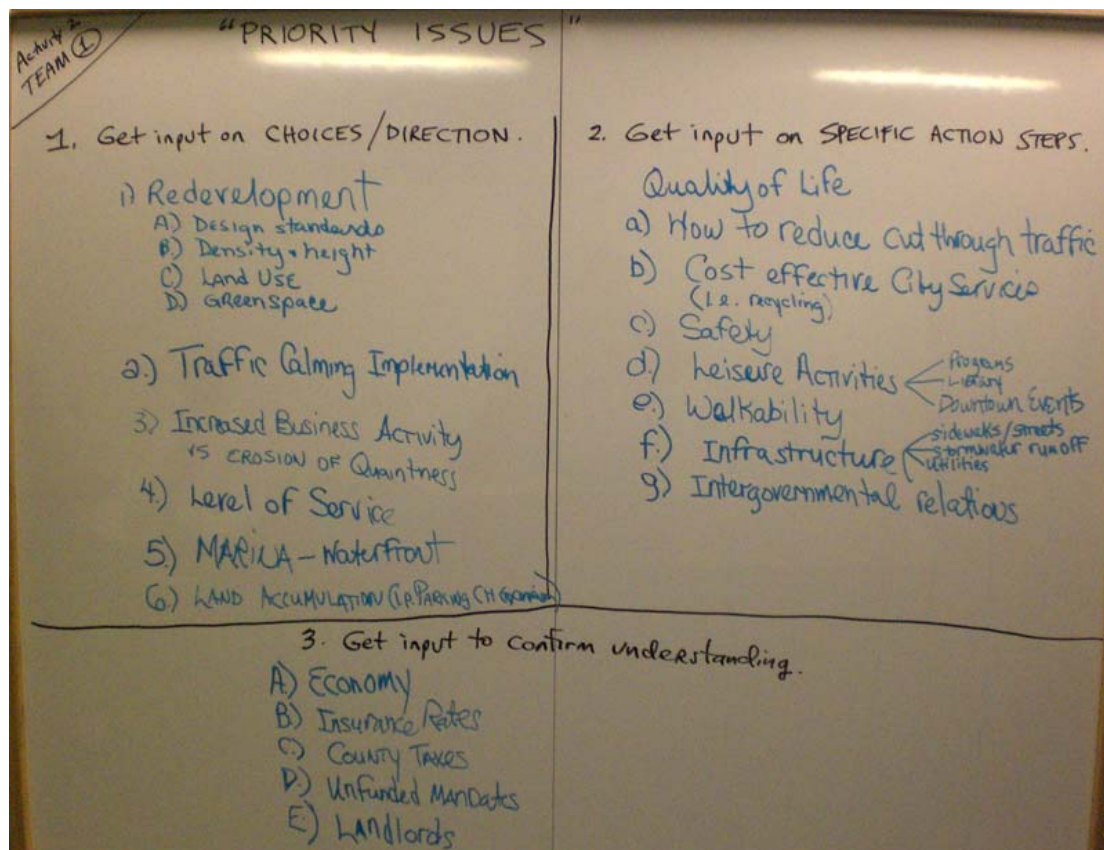 Activity 2
TEAM ①
"PRIORITY ISSUES"
1. Get input on CHOICES/DIRECTION.
1) Redevelopment
A) Design standards
B) Density + height
C) Land Use
D) Greenspace
2.) Traffic Calming Implementation
3) Increased Business Activity
vs EROSION OF Quaintness
4.) Level of Service
5.) MARINA - Waterfront
6.) LAND ACCUMULATION (I.e. PARKING CH Expansion)
2. Get input on SPECIFIC ACTION STEPS.
Quality of Life
a) How to reduce cut through traffic
b) Cost effective City Services
(I.e. recycling)
c) Safety
d.) Leisure Activities
Programs
Library
Downtown Events
e.) Walkability
f.) Infrastructure
sidewalks/streets
stormwater runoff
utilities
g) Intergovernmental relations
3. Get input to confirm understanding.
A) Economy
B) Insurance Rates
C) County Taxes
D.) Unfunded Mandates
E.) Landlords